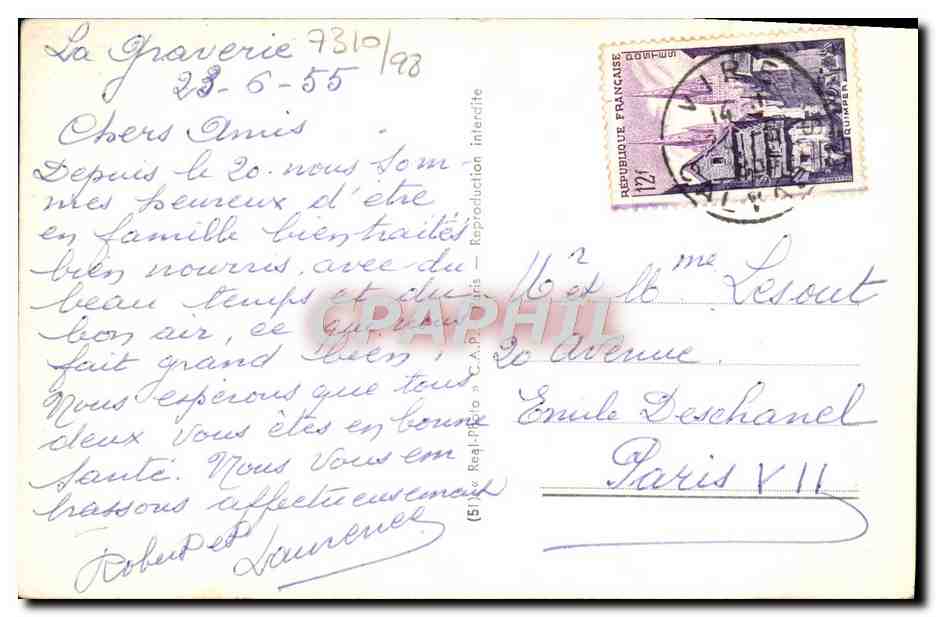 La Graverie 7310/98
23-6-55
Chers Amis
Depuis le 20. nous som-
mes heureux d'être
en famille bien traités
bien nourris, avec du
beau temps et du
bon air, ce que nous
fait grand bien,
Nous espérons que tous
deux vous êtes en bonne
santé. Nous vous em
brassons affectueusement
Robert et
Laurence
(51) « Real-Photo » C.A.P. Paris — Reproduction interdite
RÉPUBLIQUE FRANÇAISE
POSTES
12f
QUIMPER
VIRE
CPAPHIL
Mr et Mme Lesout
20 Avenue
Emile Deschanel
Paris VII